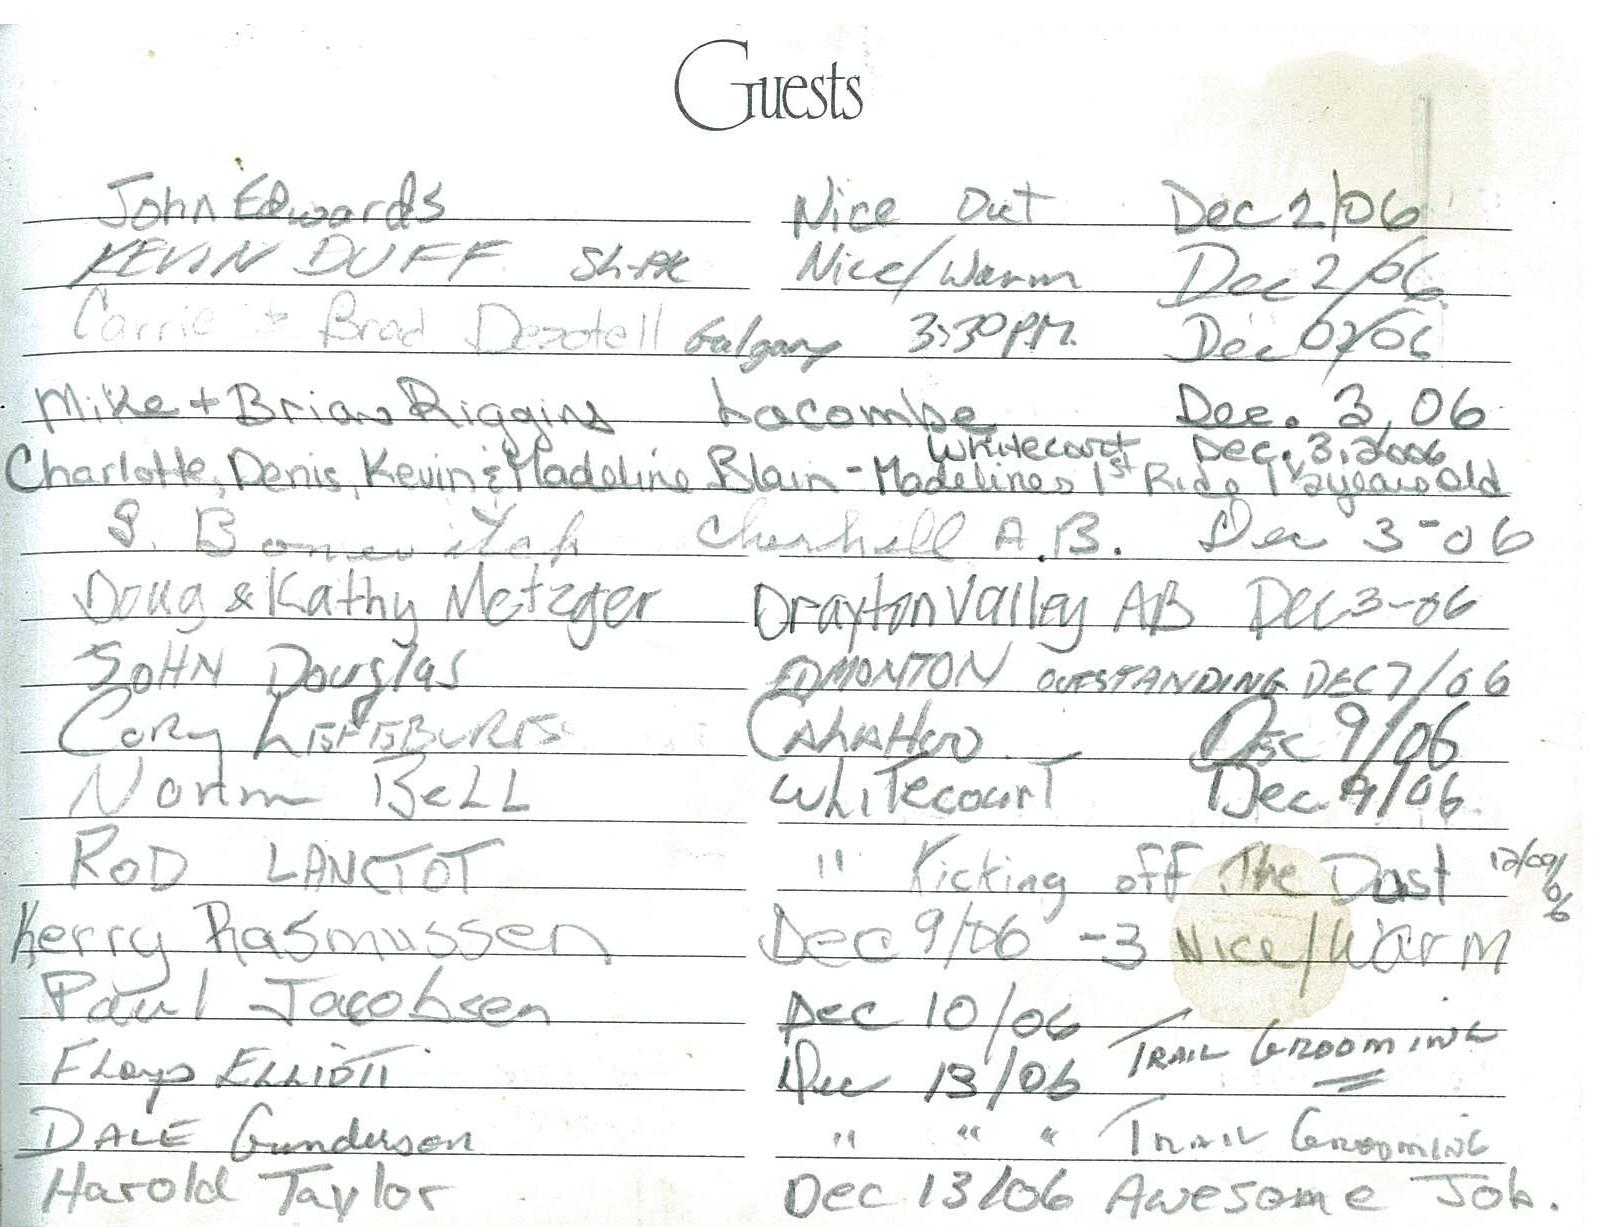 Guests
John Edwards Nice Out Dec 2/06
KEVIN DUFF Sh-PK Nice/Warm Dec 2/06
Carrie + Brad Dezotell Calgary 3:30PM. Dec 02/06
Mike + Brian Riggins Lacombe Dec. 3, 06
Whitecourt Dec. 3, 2006
Charlotte, Denis, Kevin & Madeline Blain - Madelines 1st Ride 1 1/2 years old
S. Cherhill A.B. Dec 3-06
Doug & Kathy Metzger Drayton Valley AB Dec 3-06
JOHN Douglas EDMONTON OUTSTANDING DEC 7/06
Cory CALAHOO Dec 9/06
Norm BeLL WhiTecourT Dec 9/06
ROD LANCTOT " Kicking off The Dust 12/09/06
Kerry Rasmussen Dec 9/06 -3 Nice/Warm
Paul Jacobsen Dec 10/06
FLoyd ELLIOTT Dec 13/06 TRAIL GROOMING
DALE Gunderson " " " TRAIL GROOMING
Harold Taylor Dec 13/06 Awesome Job.